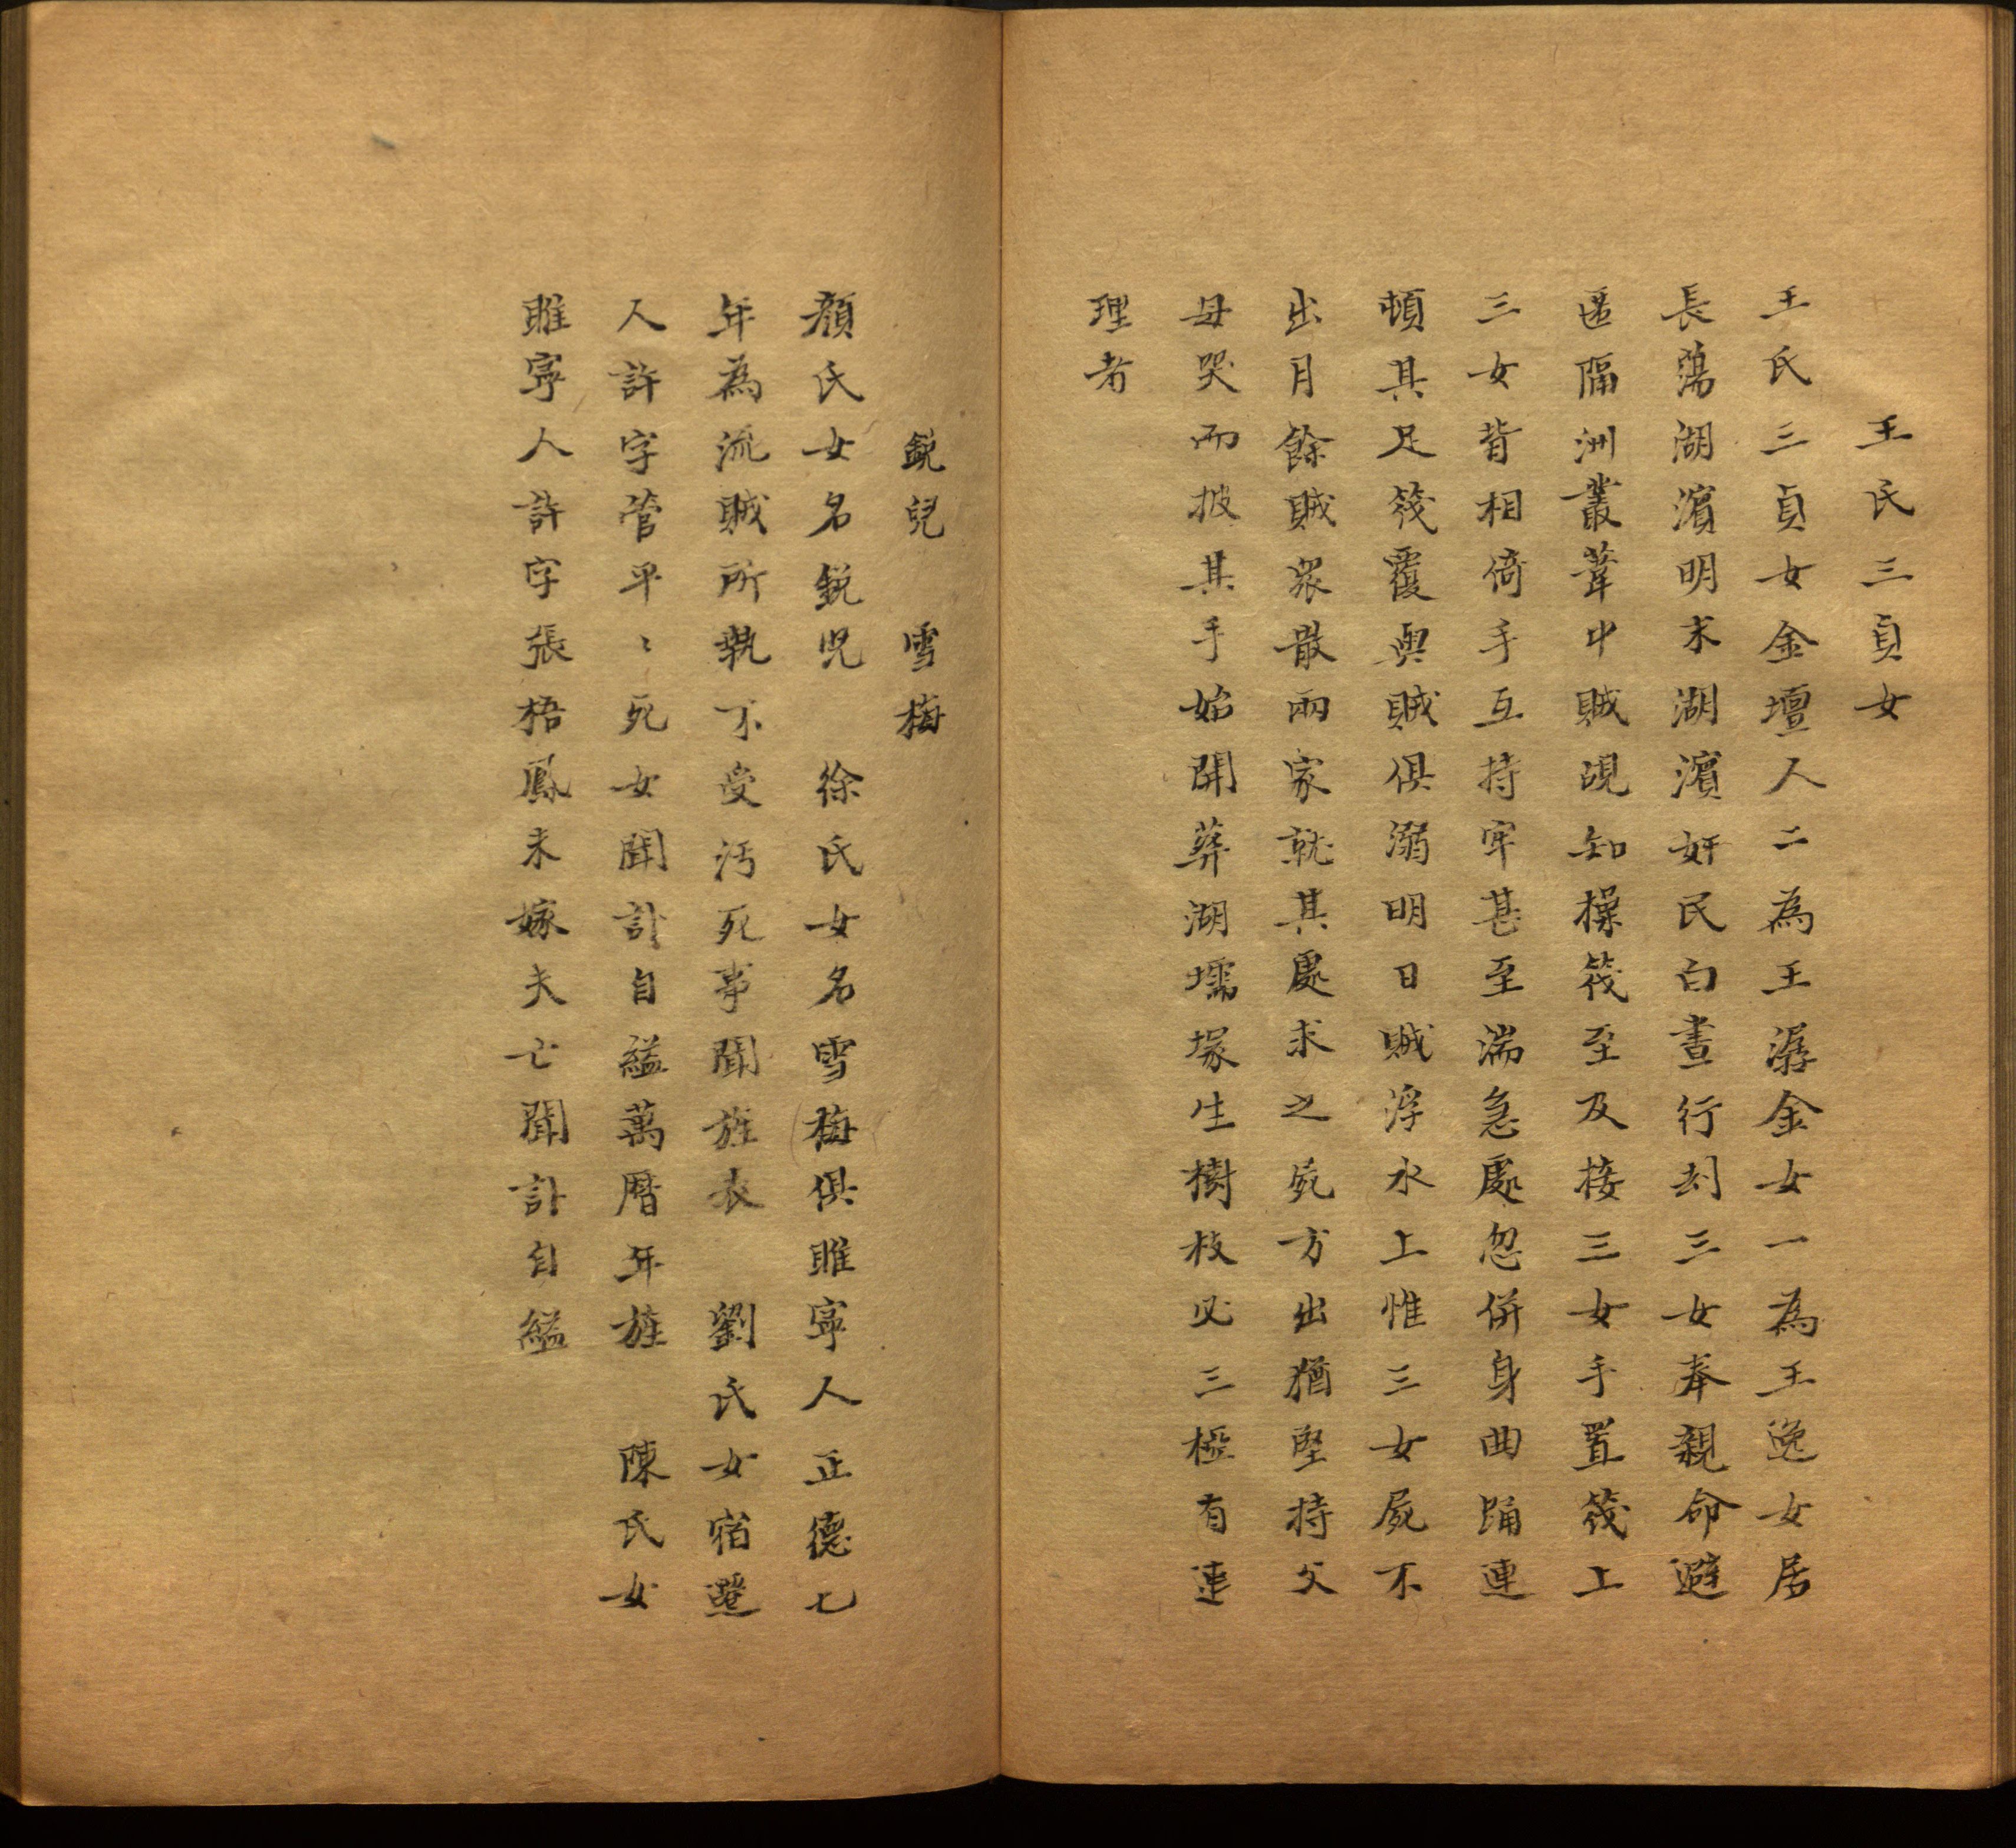 王氏三貞女
王氏三貞女金壇人二為王潺金女一為王逸女居
長蕩湖濱明末湖濱奸民白晝行刦三女奉親命避
匿隔洲叢葦中賊覘知操筏至及接三女手置筏上
三女背相倚手互持牢甚至湍急處忽併身曲踊連
頓其足筏覆與賊俱溺明日賊浮水上惟三女屍不
出月餘賊衆散兩家就其處求之屍方出猶堅持父
母哭而披其手始開葬湖壖塚生樹枝必三椏有連
理者
銳兒 雪梅
顏氏女名銳児 徐氏女名雪梅俱睢寧人正德七
年為流賊所執不受污死事聞旌表 劉氏女宿遷
人許字管平〻死女聞訃自縊萬曆年旌 陳氏女
睢寧人許字張梧鳳未嫁夫亡聞訃自縊